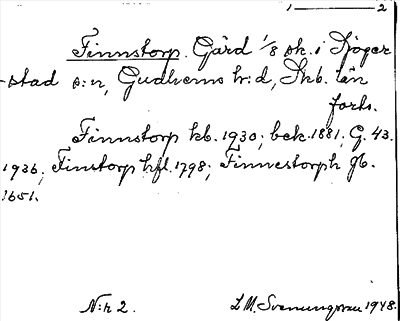 1 — 2
Finnstorp. Gård 1/8 sk. i Sjoger
-stad s:n, Gudhems hr:d, Skb. län
forts.
Finnstorp kb. 1930; bek. 1881; G. 43.
1936; Finstorp hfl. 1798; Finnestorph jb.
1651.
N:r 2. L.M. Svenungsson 1948.